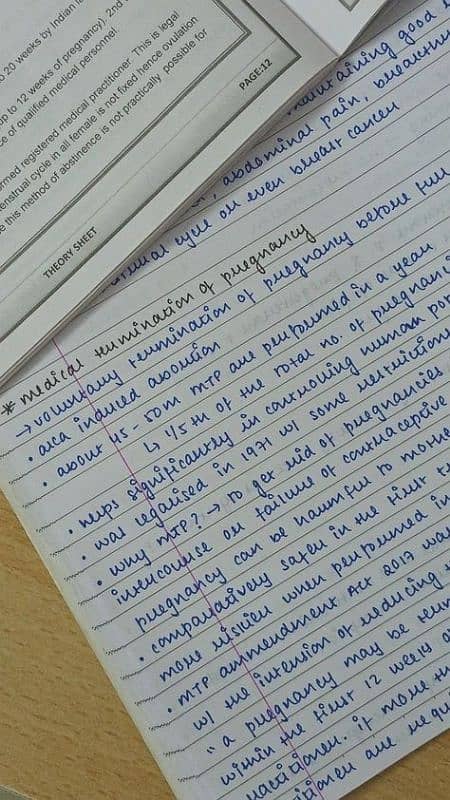 20 weeks by Indian
up to 12 weeks of pregnancy). 2nd
ce of qualified medical personnel.
ormed registered medical practitioner. This is legal
enstrual cycle in all female is not fixed hence ovulation
e this method of abstinence is not practically possible for
PAGE:12
THEORY SHEET
maintaining good
, abdominal pain,
cycle or even breast cancer
* medical termination of pregnancy
→ voluntary termination of pregnancy before full
• aka induced abortion
• about 45-50m MTP are performed in a year
↳ 1/5th of the total no. of
• helps significantly in controlling human
• was legalised in 1971 w/ some
• why MTP? → to get rid of pregnancies
intercourse or failure of contraceptive
pregnancy can be harmful to
• comparatively safer in the first
more riskier when performed in
• MTP ammendment Act 2017 was
w/ the intension of reducing
" a pregnancy may be
within the first 12 weeks
. if more
are